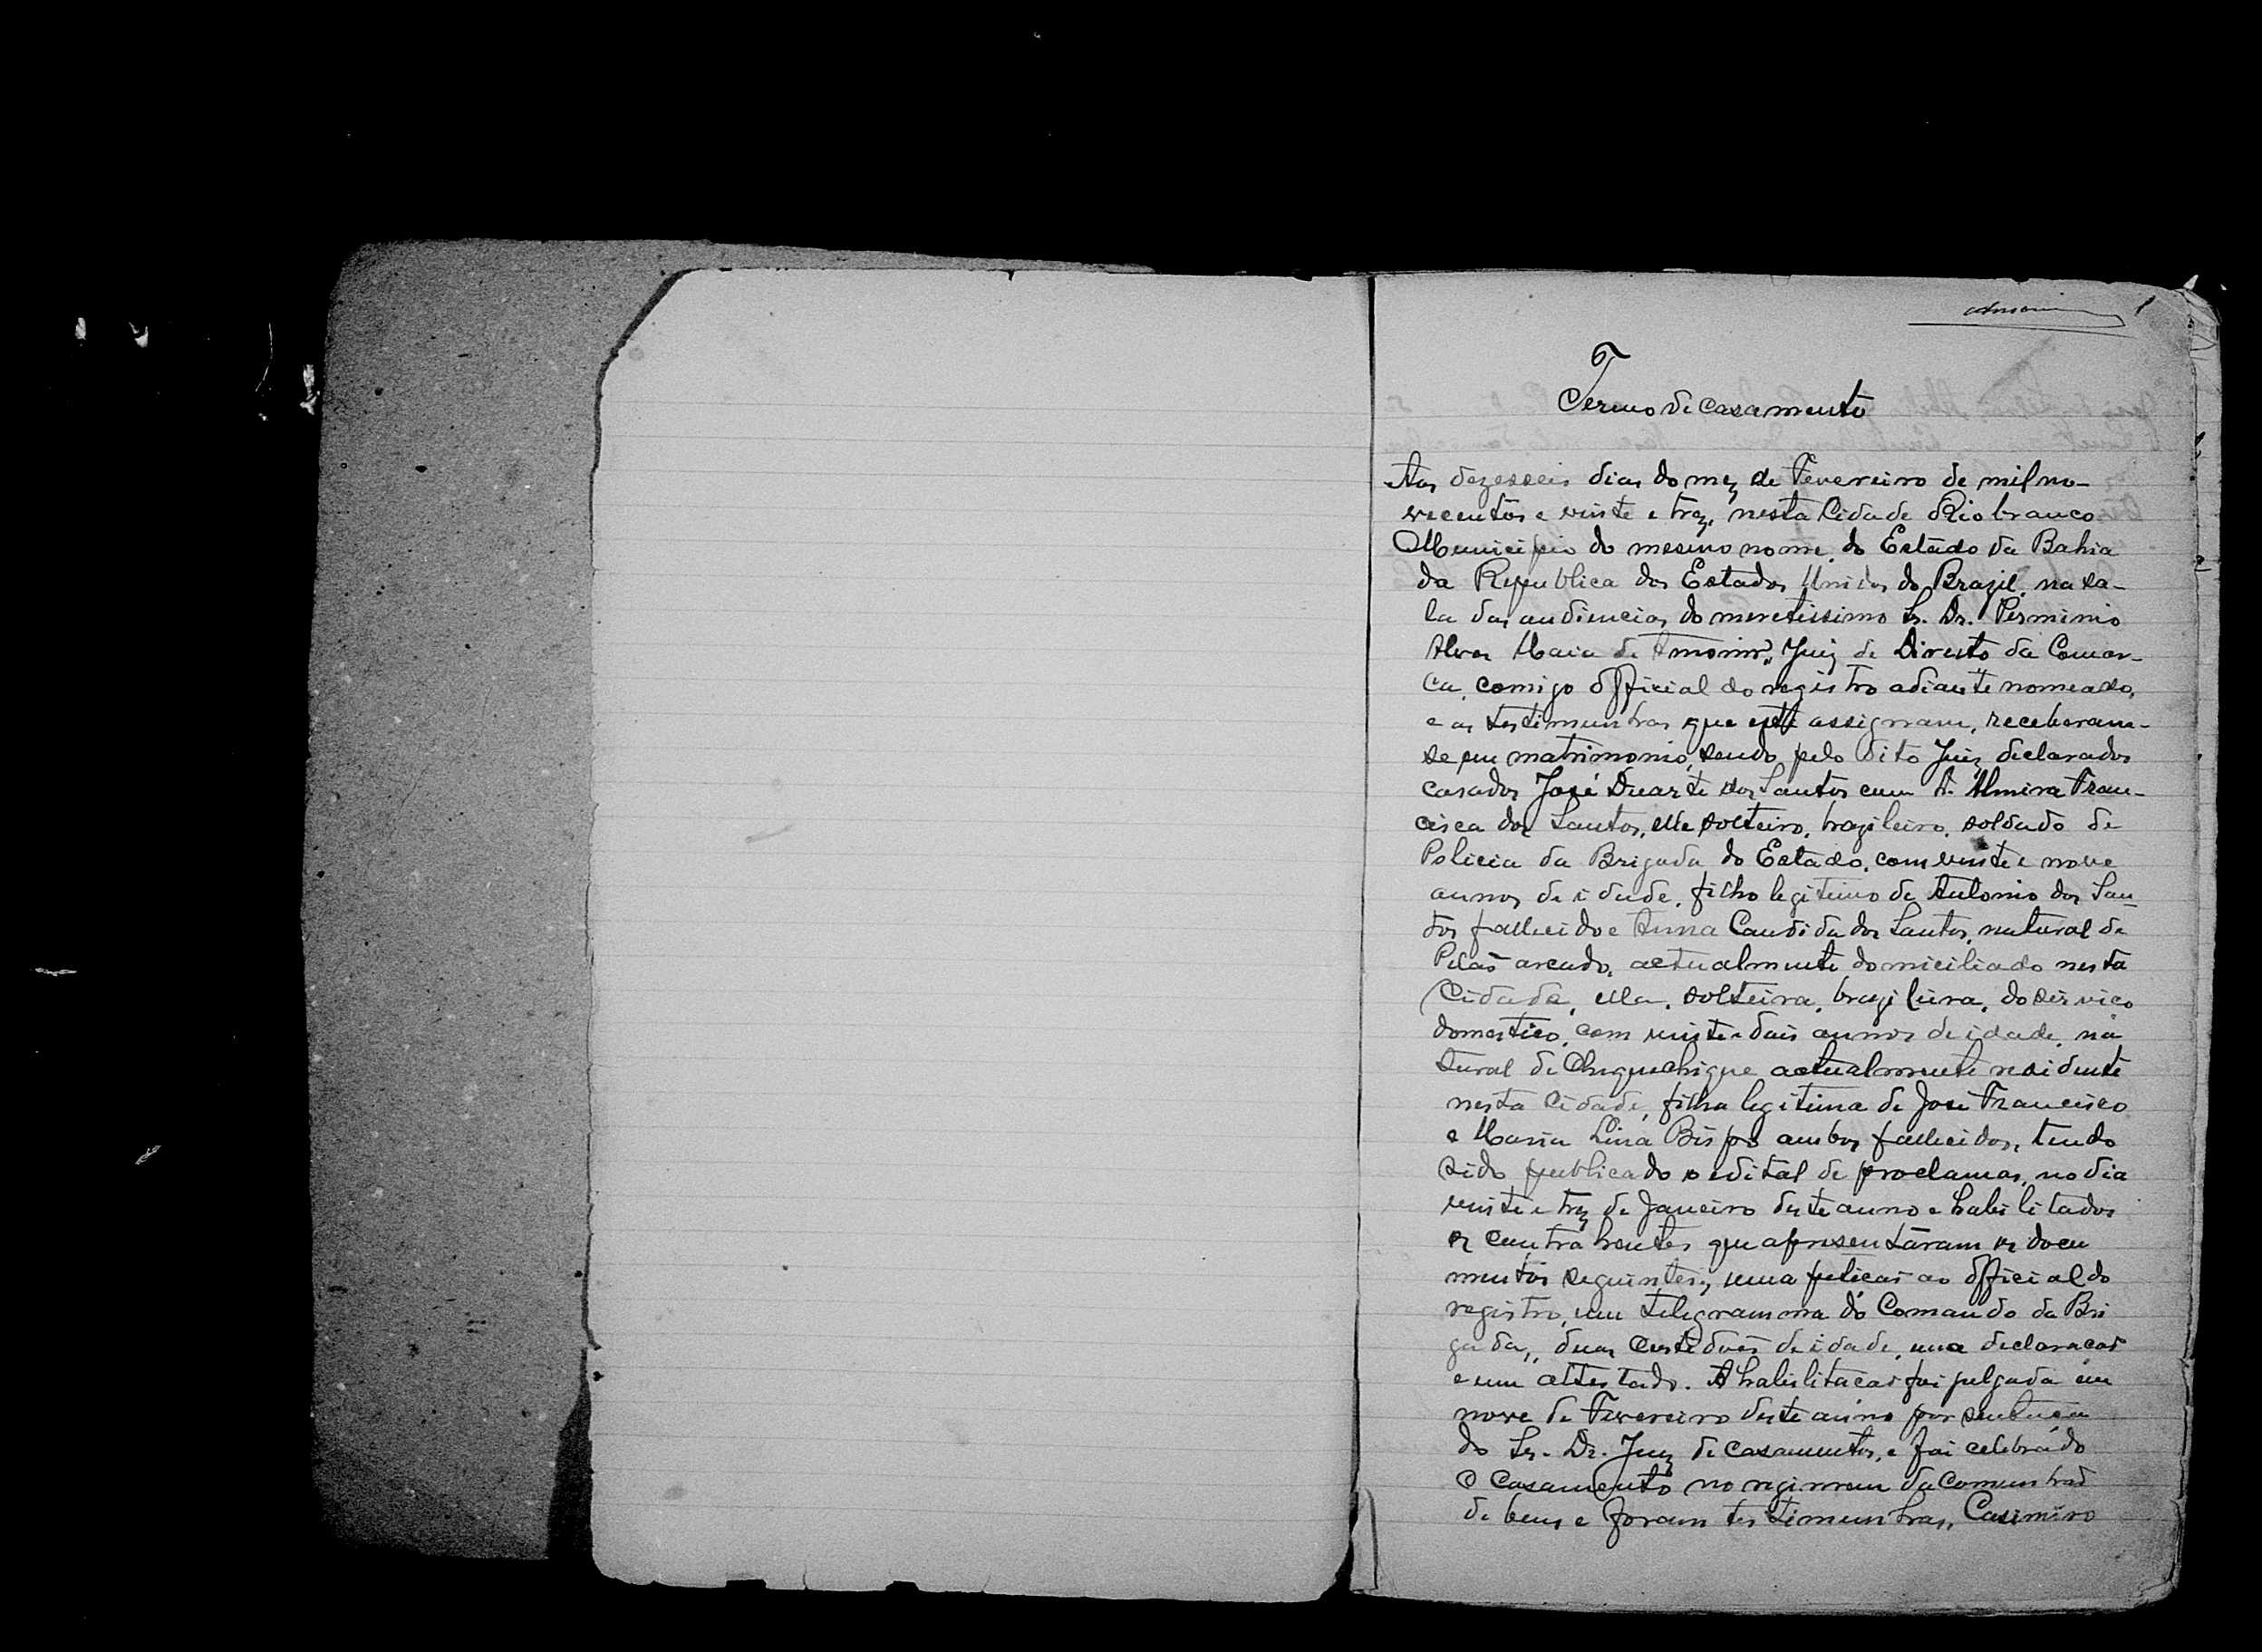 Amorim 1
Termo de casamento
Aos dezesseis dias do mez de Fevereiro de mil no-
vecentos e vinte e trez, nesta Cidade Rio branco
Municipio do mesmo nome, do Estado da Bahia
da Republica dos Estados Unidos do Brazil, na sa-
la das audiencias do meretissimo Sr. Dr. Perminio
Alves Maia de Amorim, Juiz de Direito da Comar-
ca, comigo official do registro adiante nomeado,
e as testimunhas que este assignam, receberam-
se em matrimonio, sendo pelo dito Juiz declarados
casados José Duarte dos Santos com D. Almira Fran-
cisca dos Santos, elle solteiro, brazileiro, soldado de
Policia da Brigada do Estado, com vinte e nove
annos de idade, filho legitimo de Antonio dos San
tos fallecido e Anna Candida dos Santos, natural de
Pilão arcado, actualmente domiciliado nesta
Cidade, ella, solteira, brazileira, do serviço
domestico, com vinte e dois annos de idade, na
tural de Chiquechique actualmente residente
nesta Cidade, filha legitima de José Francisco
e Maria Lina Bispo ambos fallecidos, tendo
sido publicado o edital de proclamas, no dia
vinte e trez de Janeiro deste anno e habilitados
os contrahentes que apresentáram os docu
mentos seguintes, uma petição ao official do
registro, um telegramma do Comando da Bri
gada, duas certidões de idade, uma declaração
e um attestado. A habilitação foi julgada em
nove de Fevereiro deste anno por sentença
do Sr. Dr. Juiz de casamentos, e foi celebrado
o casamento no regimem da Comunhão
de bens e foram testimunhas, Casimiro